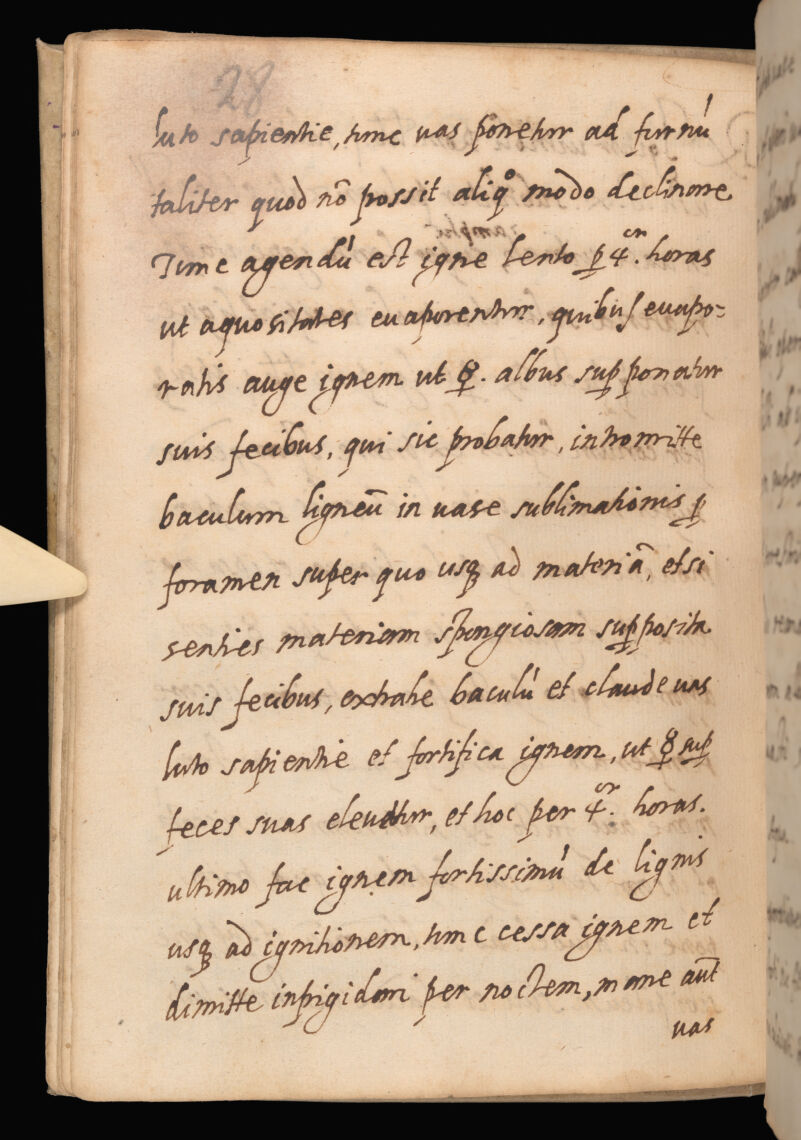 28
luto sapientie, tunc uas ponetur ad furnú
taliter quod nõ possit aliqº modo declinare
Tunc agendú est igne lento ꝑ 4ᵒʳ. horas
ut aquositates euaporentur, quibus euapo=
ratis auge ignem ut ☿. albus suꝑponatur
suis fecibus, qui sic probatur, intromitte
baculum ligneũ in uase sublimationis ꝑ
foramen super quo usqꝫ ad materiã, et si
senties materiam spongiosam suꝑposita
suis fecibus, extrahe baculú et claude uas
luto sapientie et fortifica ignem, ut ☿ suꝑ
feces suas eleuatur, et hoc per 4ᵒʳ. horas.
ultimo fac ignem fortissimú de lignis
usqꝫ ad ignitionem, tunc cessa ignem et
dimitte infrigidari per noctem, mane aũt
uas